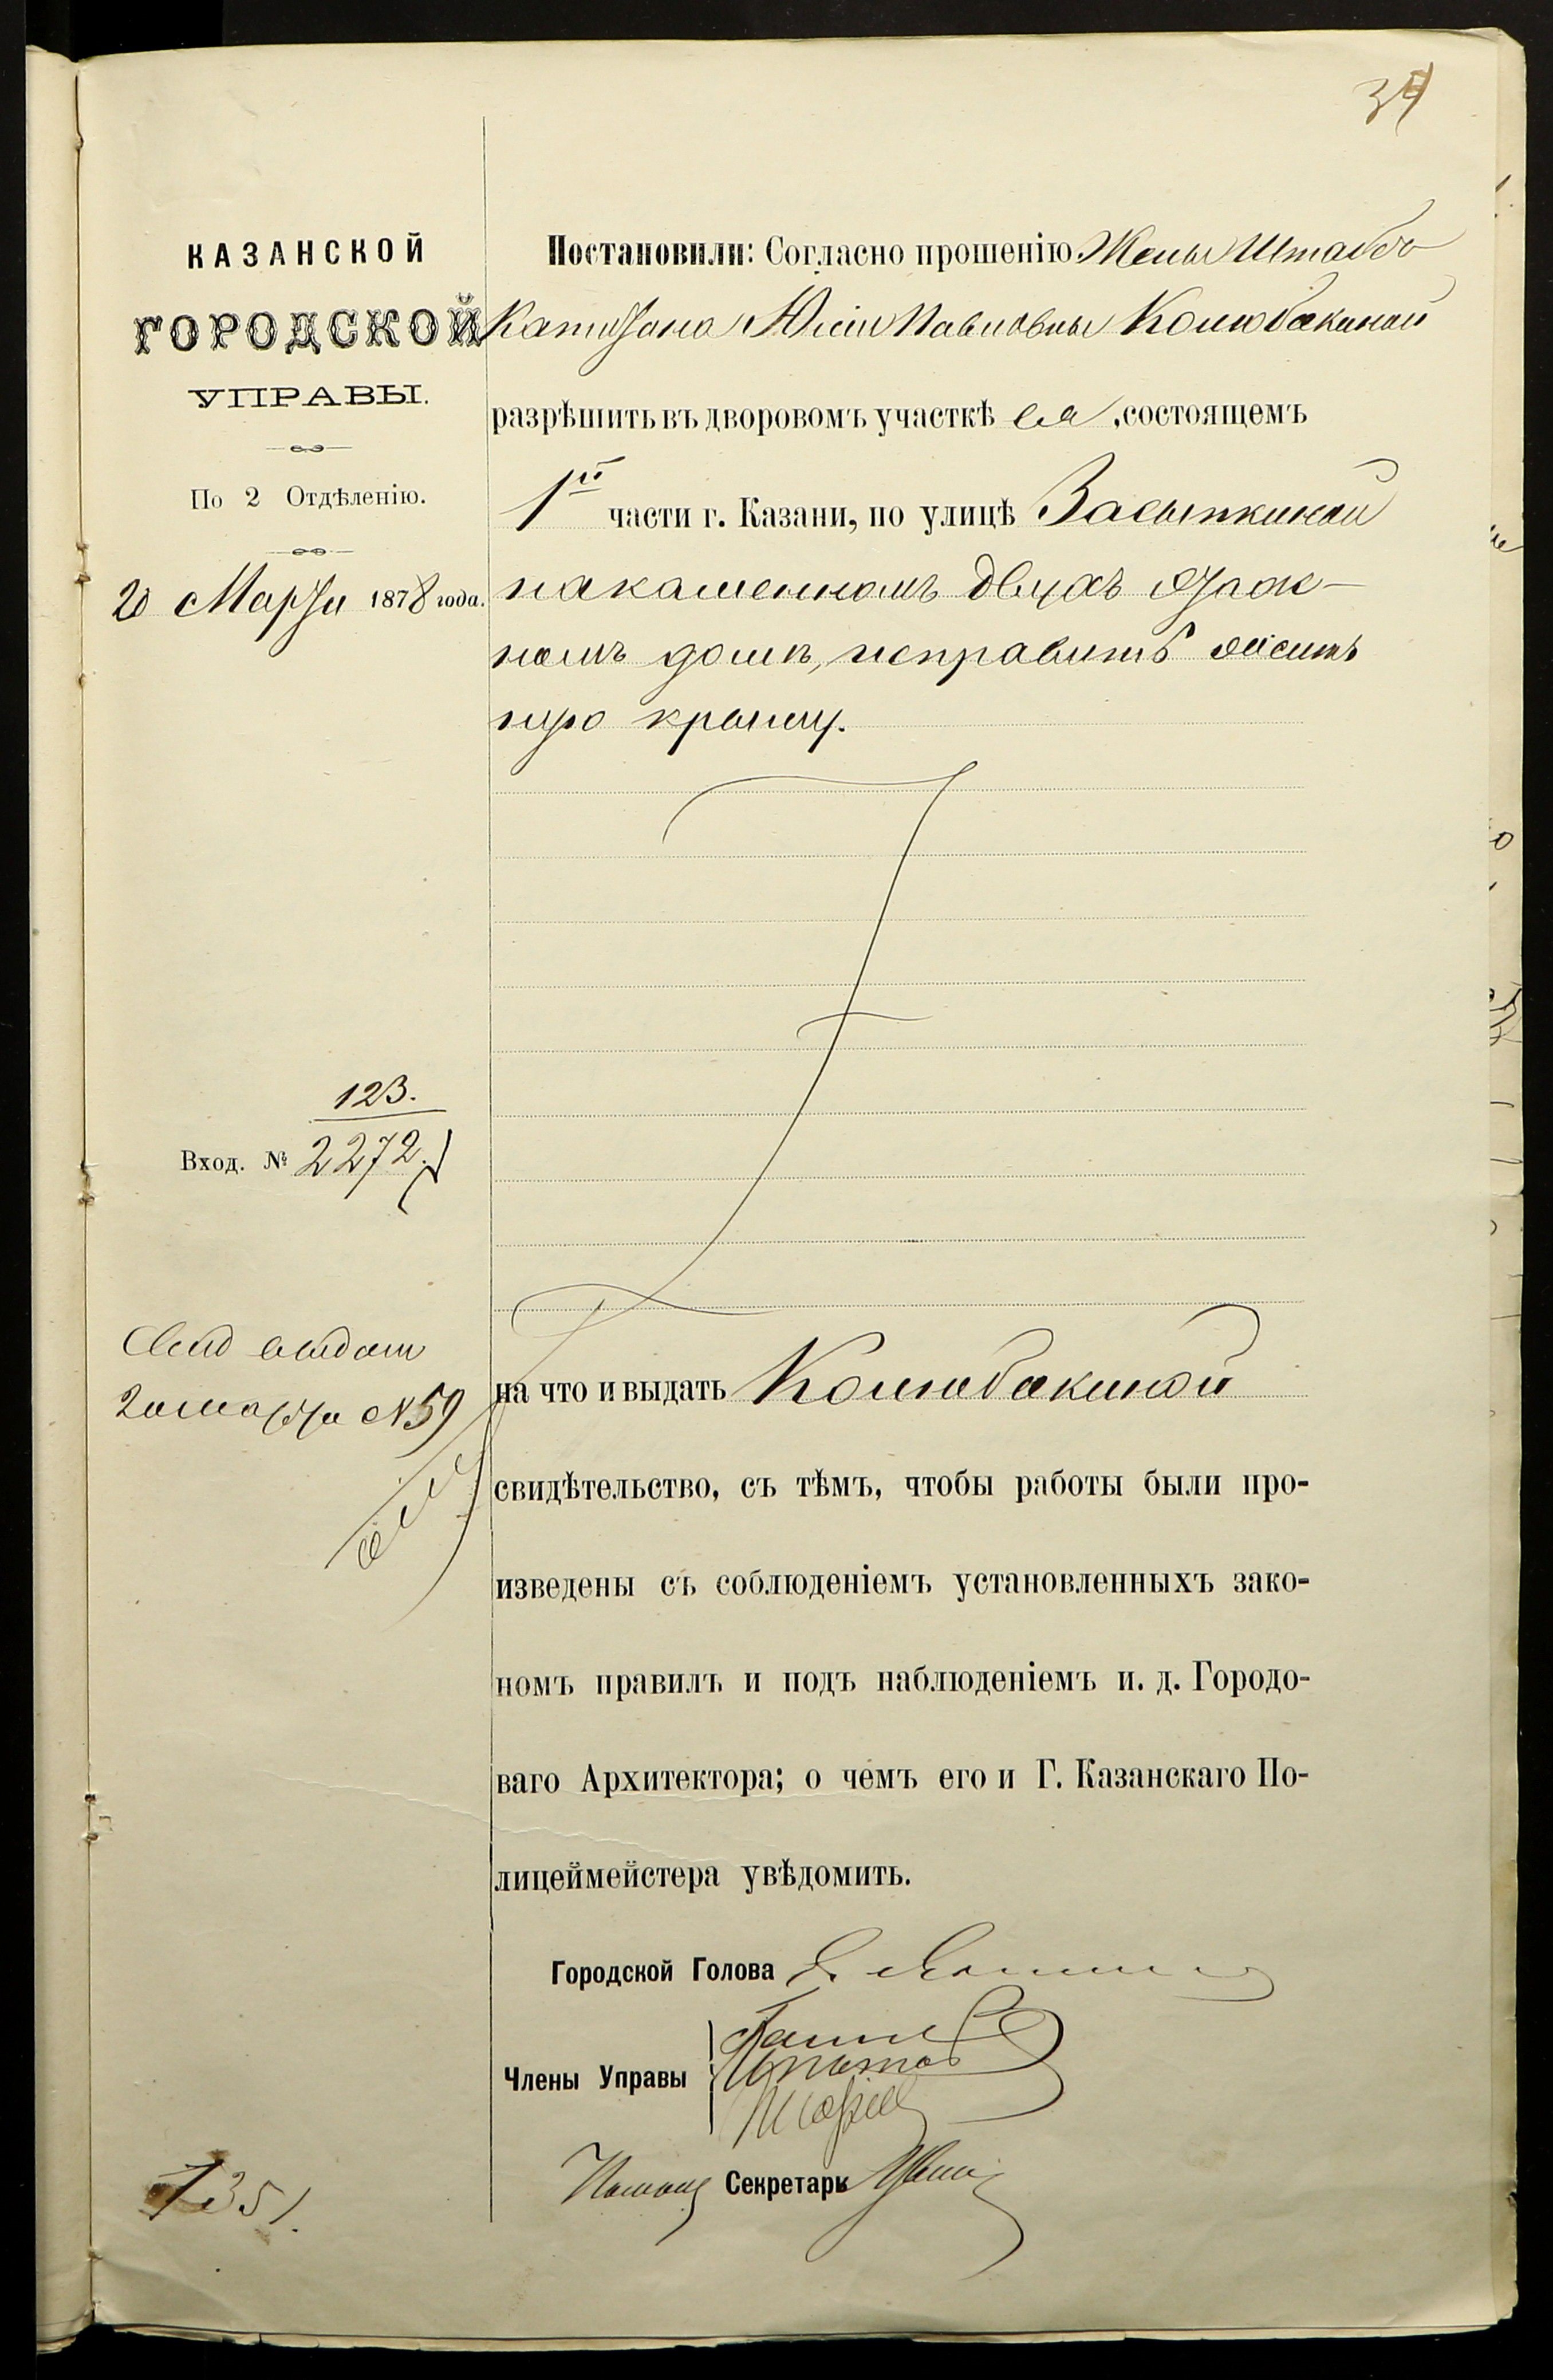 КАЗАНСКОЙ
ГОРОДСКОЙ
УПРАВЫ.
По 2 Отдѣленію.
20 Марта 1878 года.
123.
Вход. № 2272.
Свид выдат
20 марта № 59
1351.
Постановили: Согласно прошенію Жены Штабсъ
Капитана Юліи Павловны Колюбакиной
разрѣшить въ дворовомъ участкѣ ея, состоящемъ
1й части г. Казани, по улицѣ Засыпкиной
на каменномъ двухъ этаж-
номъ домѣ, исправить
крышу.
на что и выдать Колюбакиной
свидѣтельство, съ тѣмъ, чтобы работы были про-
изведены съ соблюденіемъ установленныхъ зако-
номъ правилъ и подъ наблюденіемъ и. д. Городо-
ваго Архитектора; о чемъ его и Г. Казанскаго По-
лицеймейстера увѣдомить.
Городской Голова
Члены Управы
Секретарь